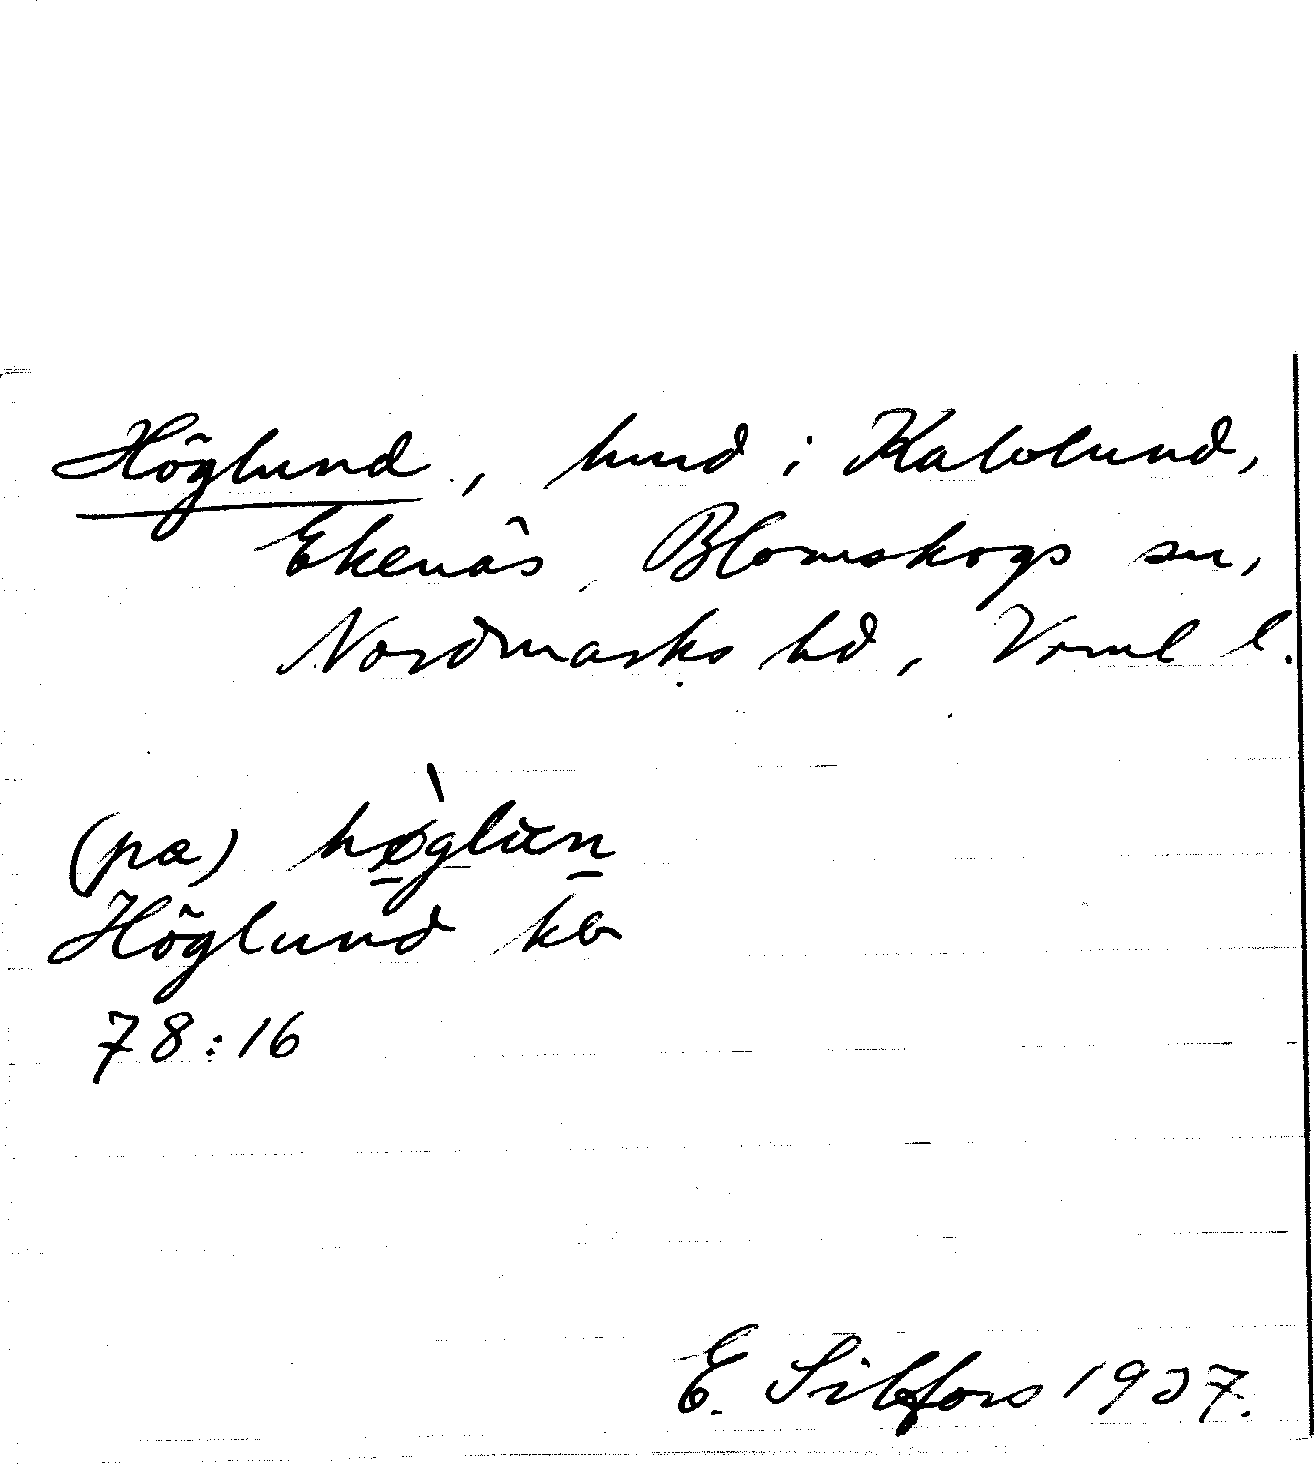 Höglund, hmd i Kalvlund,
Ekenäs, Blomskogs sn,
Nordmarks hd, Vrml l.
(pa) høglun
Höglund kb
78:16
E. Silfors 1937.